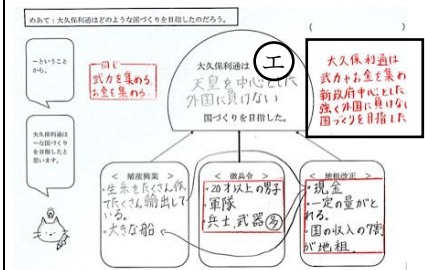 めあて：大久保利通はどのような国づくりを目指したのだろう。
(　　　　　)
～ということ
から、
同じ
武力を集める
お金を集める
大久保利通は
エ
天皇を中心とした
外国に負けない
国づくりを目指した。
大久保利通は
武力やお金を集め
新政府中心とした
強く外国に負けない
国づくりを目指した
大久保利通は
～な国づくり
を目指したと
思います。
＜ 殖産興業 ＞
・生糸をたくさん作っ
てたくさん輸出して
いる。
・大きな船
＜ 徴兵令 ＞
・20才以上の男子
・軍隊
・兵士、武器 多
＜ 地租改正 ＞
・現金
・一定の量がと
れる。
・国の収入の7割
が地租